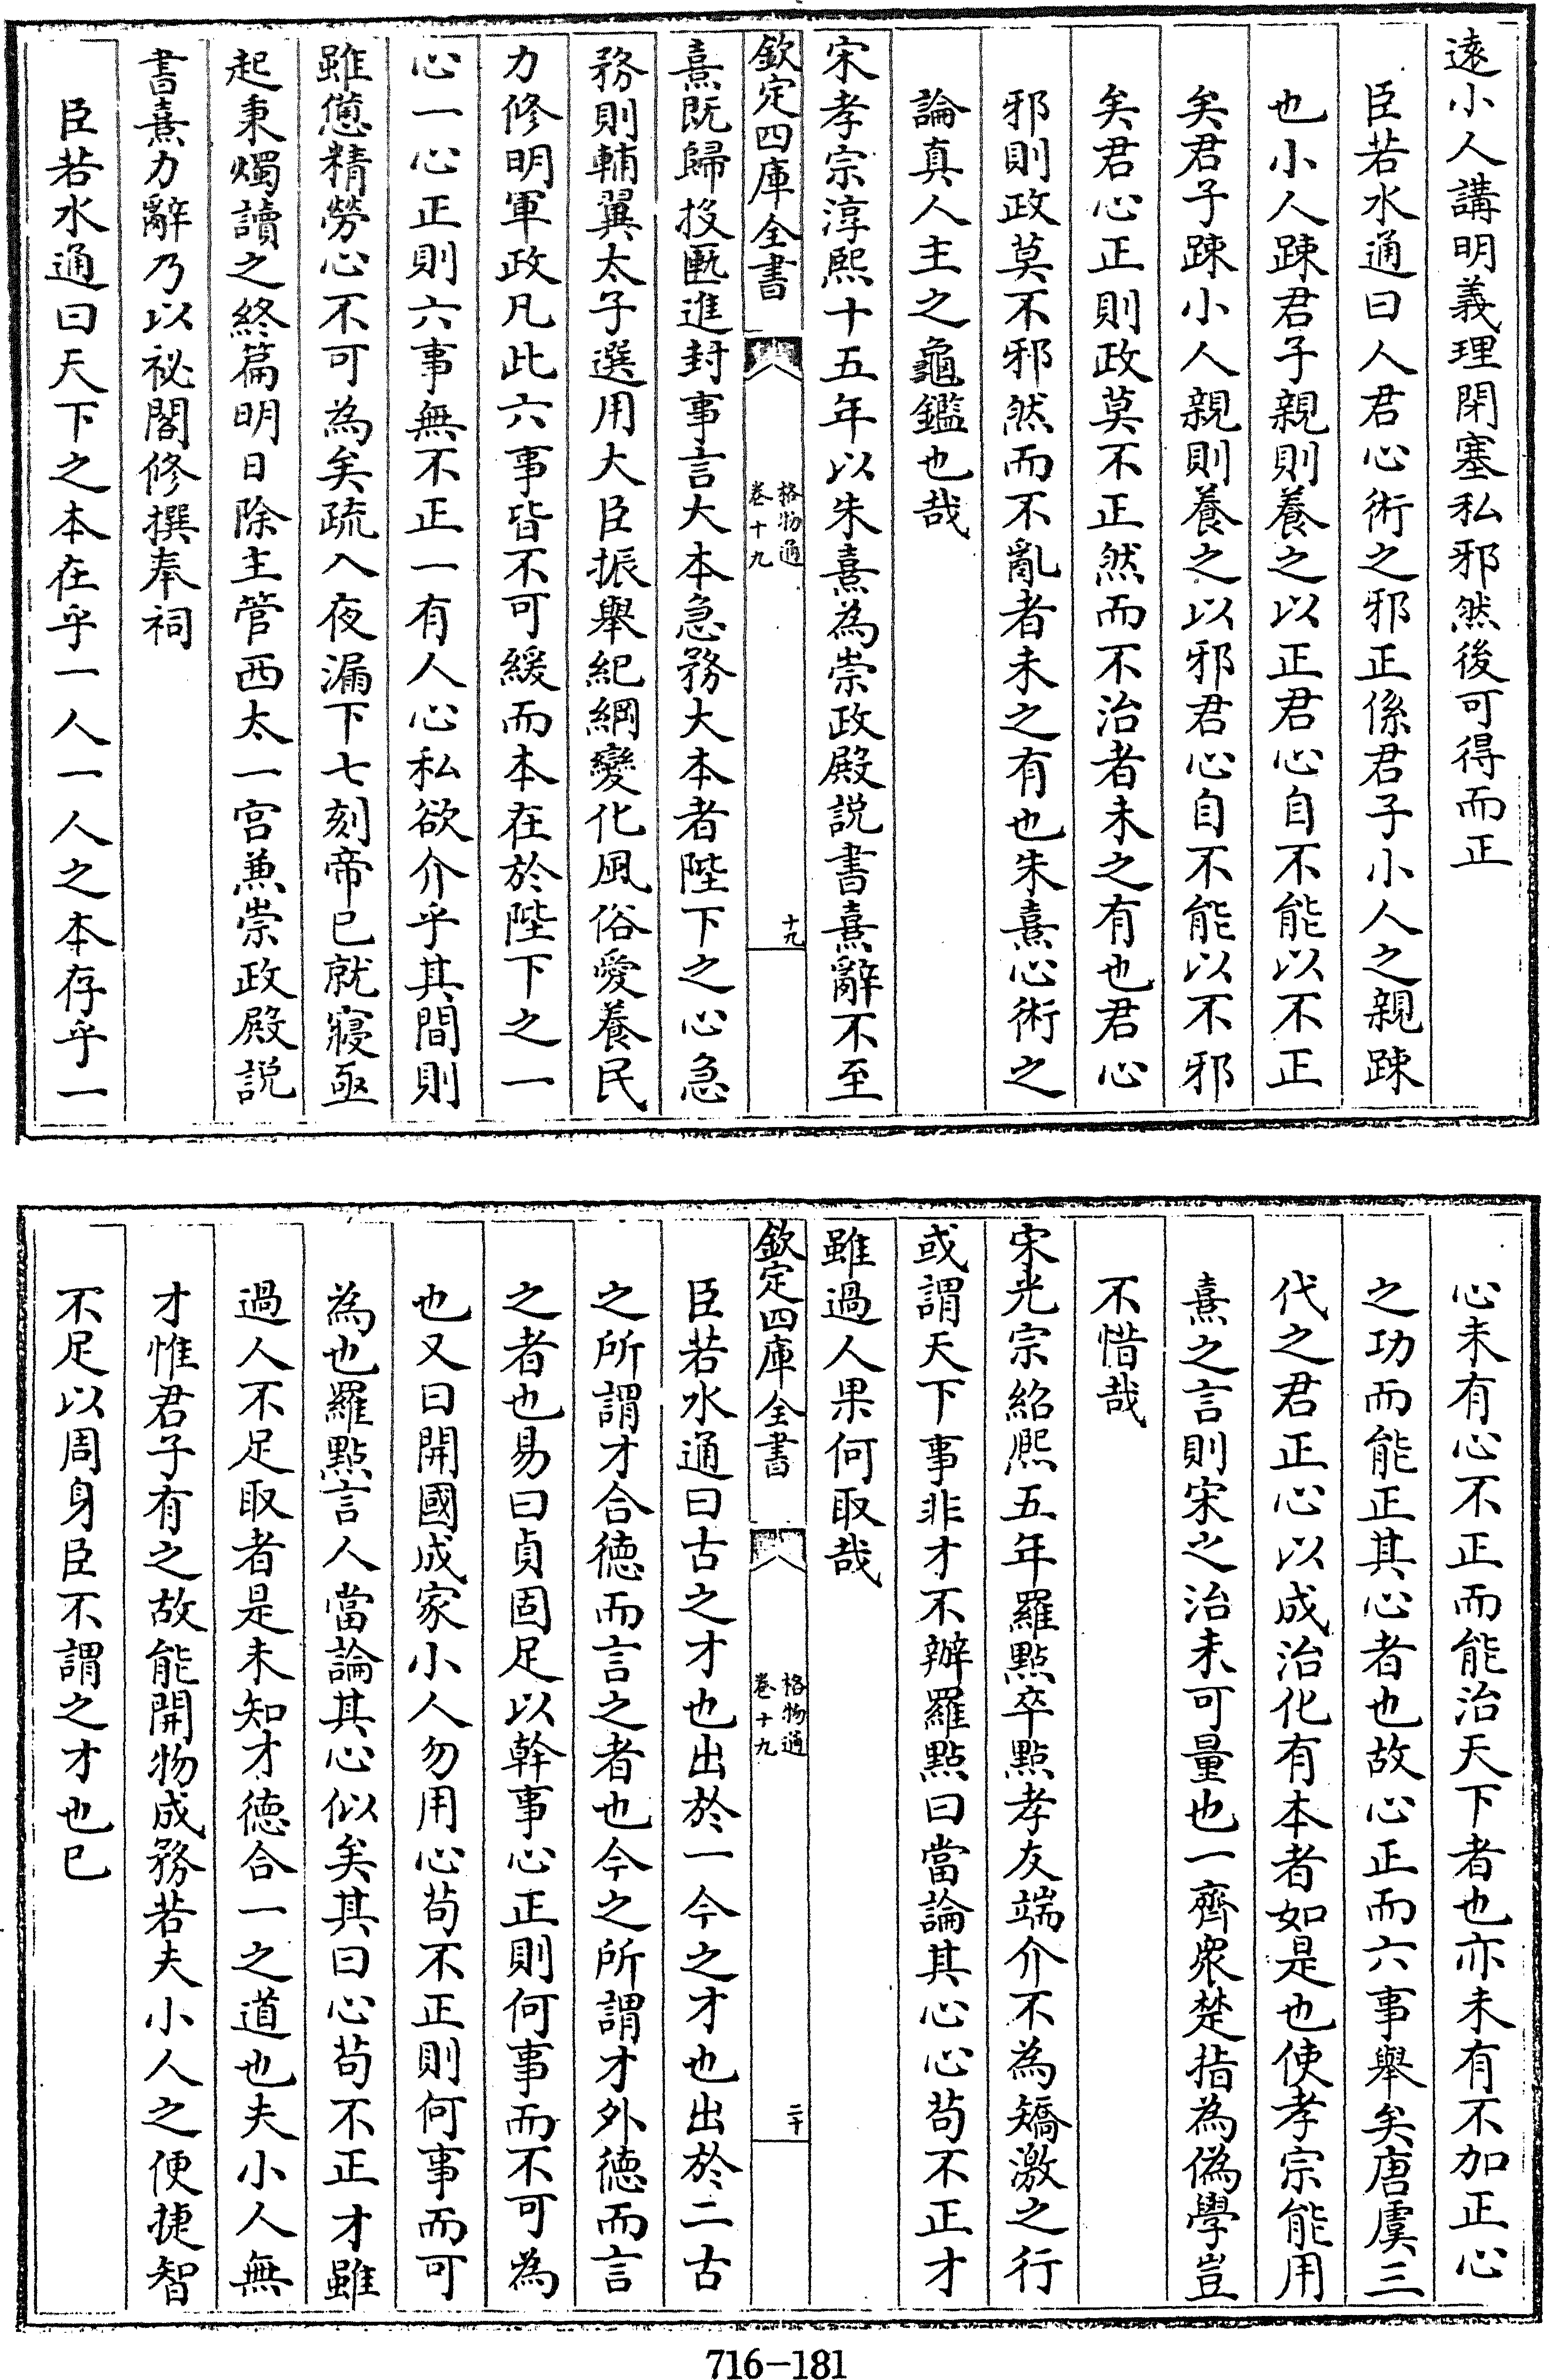 遠小人講明義理閉塞私邪然後可得而正
臣若水通曰人君心術之邪正係君子小人之親踈
也小人踈君子親則養之以正君心自不能以不正
矣君子踈小人親則養之以邪君心自不能以不邪
矣君心正則政莫不正然而不治者未之有也君心
邪則政莫不邪然而不亂者未之有也朱熹心術之
論真人主之龜鑑也哉
宋孝宗淳熙十五年以朱熹為崇政殿説書熹辭不至
欽定四庫全書
格物通
卷十九
十九
熹既歸投匭進封事言大本急務大本者陛下之心急
務則輔翼太子選用大臣振舉紀綱變化風俗愛養民
力修明軍政凡此六事皆不可緩而本在於陛下之一
心一心正則六事無不正一有人心私欲介乎其間則
雖憊精勞心不可為矣疏入夜漏下七刻帝已就寢亟
起秉燭讀之終篇明日除主管西太一宫兼崇政殿説
書熹力辭乃以祕閣修撰奉祠
臣若水通曰天下之本在乎一人一人之本存乎一
心未有心不正而能治天下者也亦未有不加正心
之功而能正其心者也故心正而六事舉矣唐虞三
代之君正心以成治化有本者如是也使孝宗能用
熹之言則宋之治未可量也一齊衆楚指為偽學豈
不惜哉
宋光宗紹熈五年羅點卒點孝友端介不為矯激之行
或謂天下事非才不辦羅點曰當論其心心苟不正才
雖過人果何取哉
欽定四庫全書
格物通
卷十九
二十
臣若水通曰古之才也出於一今之才也出於二古
之所謂才合德而言之者也今之所謂才外德而言
之者也易曰貞固足以幹事心正則何事而不可為
也又曰開國成家小人勿用心苟不正則何事而可
為也羅點言人當論其心似矣其曰心苟不正才雖
過人不足取者是未知才德合一之道也夫小人無
才惟君子有之故能開物成務若夫小人之便捷智
不足以周身臣不謂之才也已
716-181